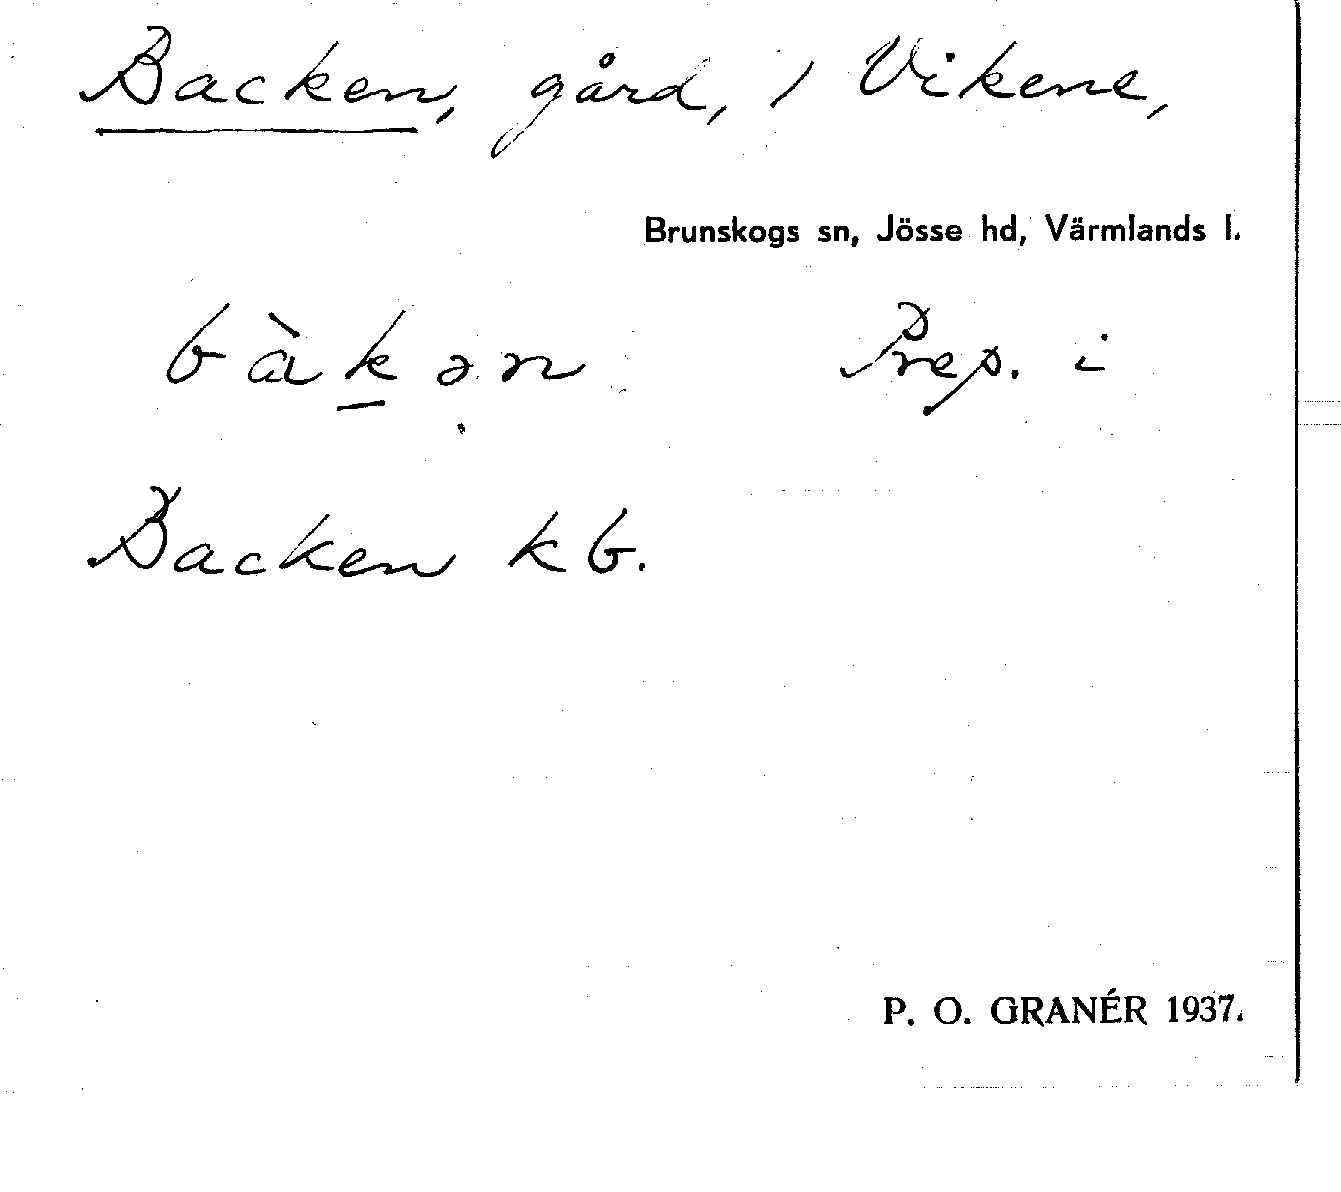 Backen, gård, i Vikene,
Brunskogs sn, Jösse hd, Värmlands l.
bàkən Prep. i
Backen kb.
P. O. GRANÉR 1937.